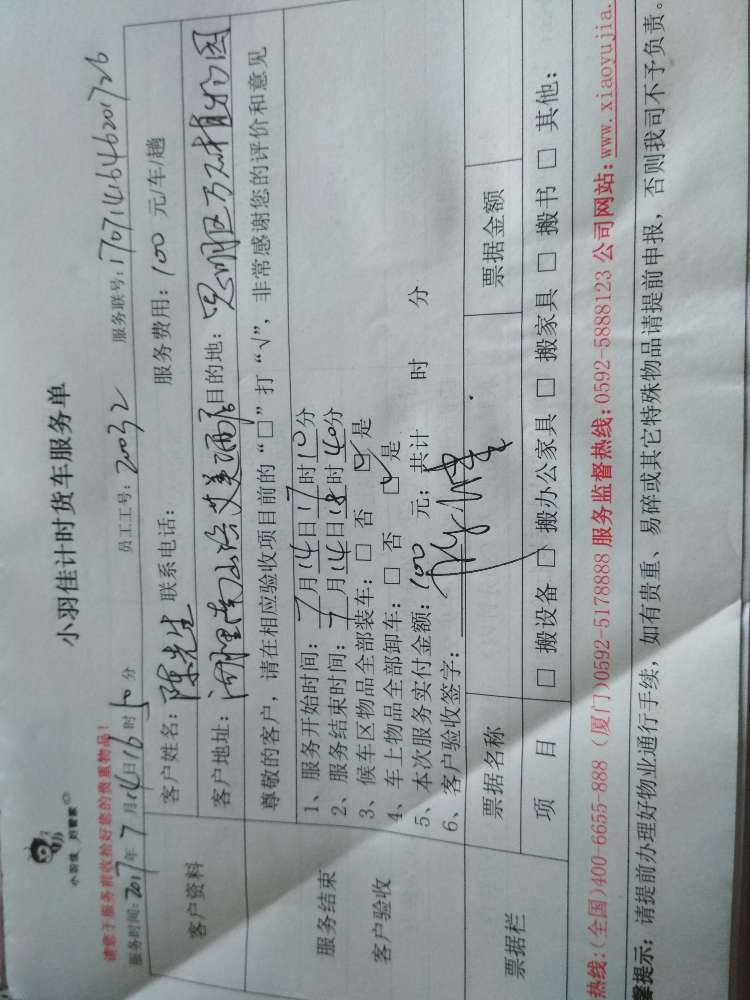 小羽佳 好管家
小羽佳计时货车服务单
请您于服务前收拾好您的贵重物品!
服务时间:2017年7月14日16时50分 员工工号:20032 服务联号:1707141646201726
客户资料
客户姓名:陈先生 联系电话: 服务费用:100 元/车/趟
客户地址: 目的地:思明区万石植物园
尊敬的客户,请在相应验收项目前的“□”打“√”,非常感谢您的评价和意见
服务结束
客户验收
1、服务开始时间:7月14日17时10分
2、服务结束时间:7月14日18时40分
3、候车区物品全部装车:□ 否 ☑ 是
4、车上物品全部卸车:□ 否 ☑ 是
5、本次服务实付金额:100 元;共计 时 分
6、客户验收签字:
票据栏
票据名称 票据金额
项 目 □ 搬设备 □ 搬办公家具 □ 搬家具 □ 搬书 □ 其他:
热线:(全国)400-6655-888 (厦门)0592-5178888 服务监督热线:0592-5888123 公司网站:www.xiaoyujia.
馨提示:请提前办理好物业通行手续,如有贵重、易碎或其它特殊物品请提前申报,否则我司不予负责。